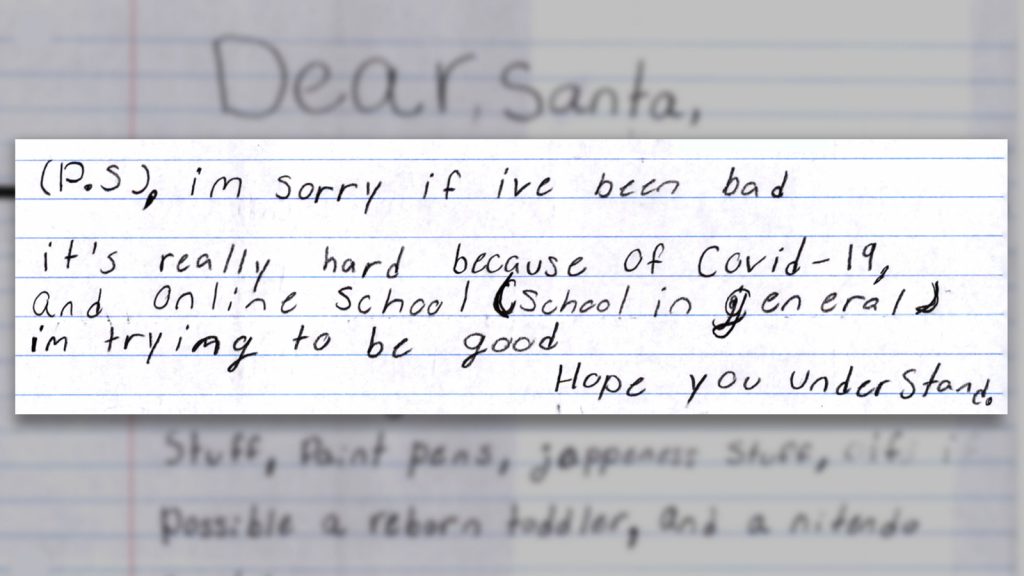 Dear, Santa,
(P.S), im sorry if ive been bad
it's really hard because of Covid-19,
and online school (school in general)
im trying to be good
Hope you understand.
Stuff, Paint pens, jappeness stuff, if
possible a reborn toddler, and a nitendo